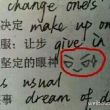 change one's
决定 make up one
服；让步 give in
坚定的眼神
as usual
事 dream of